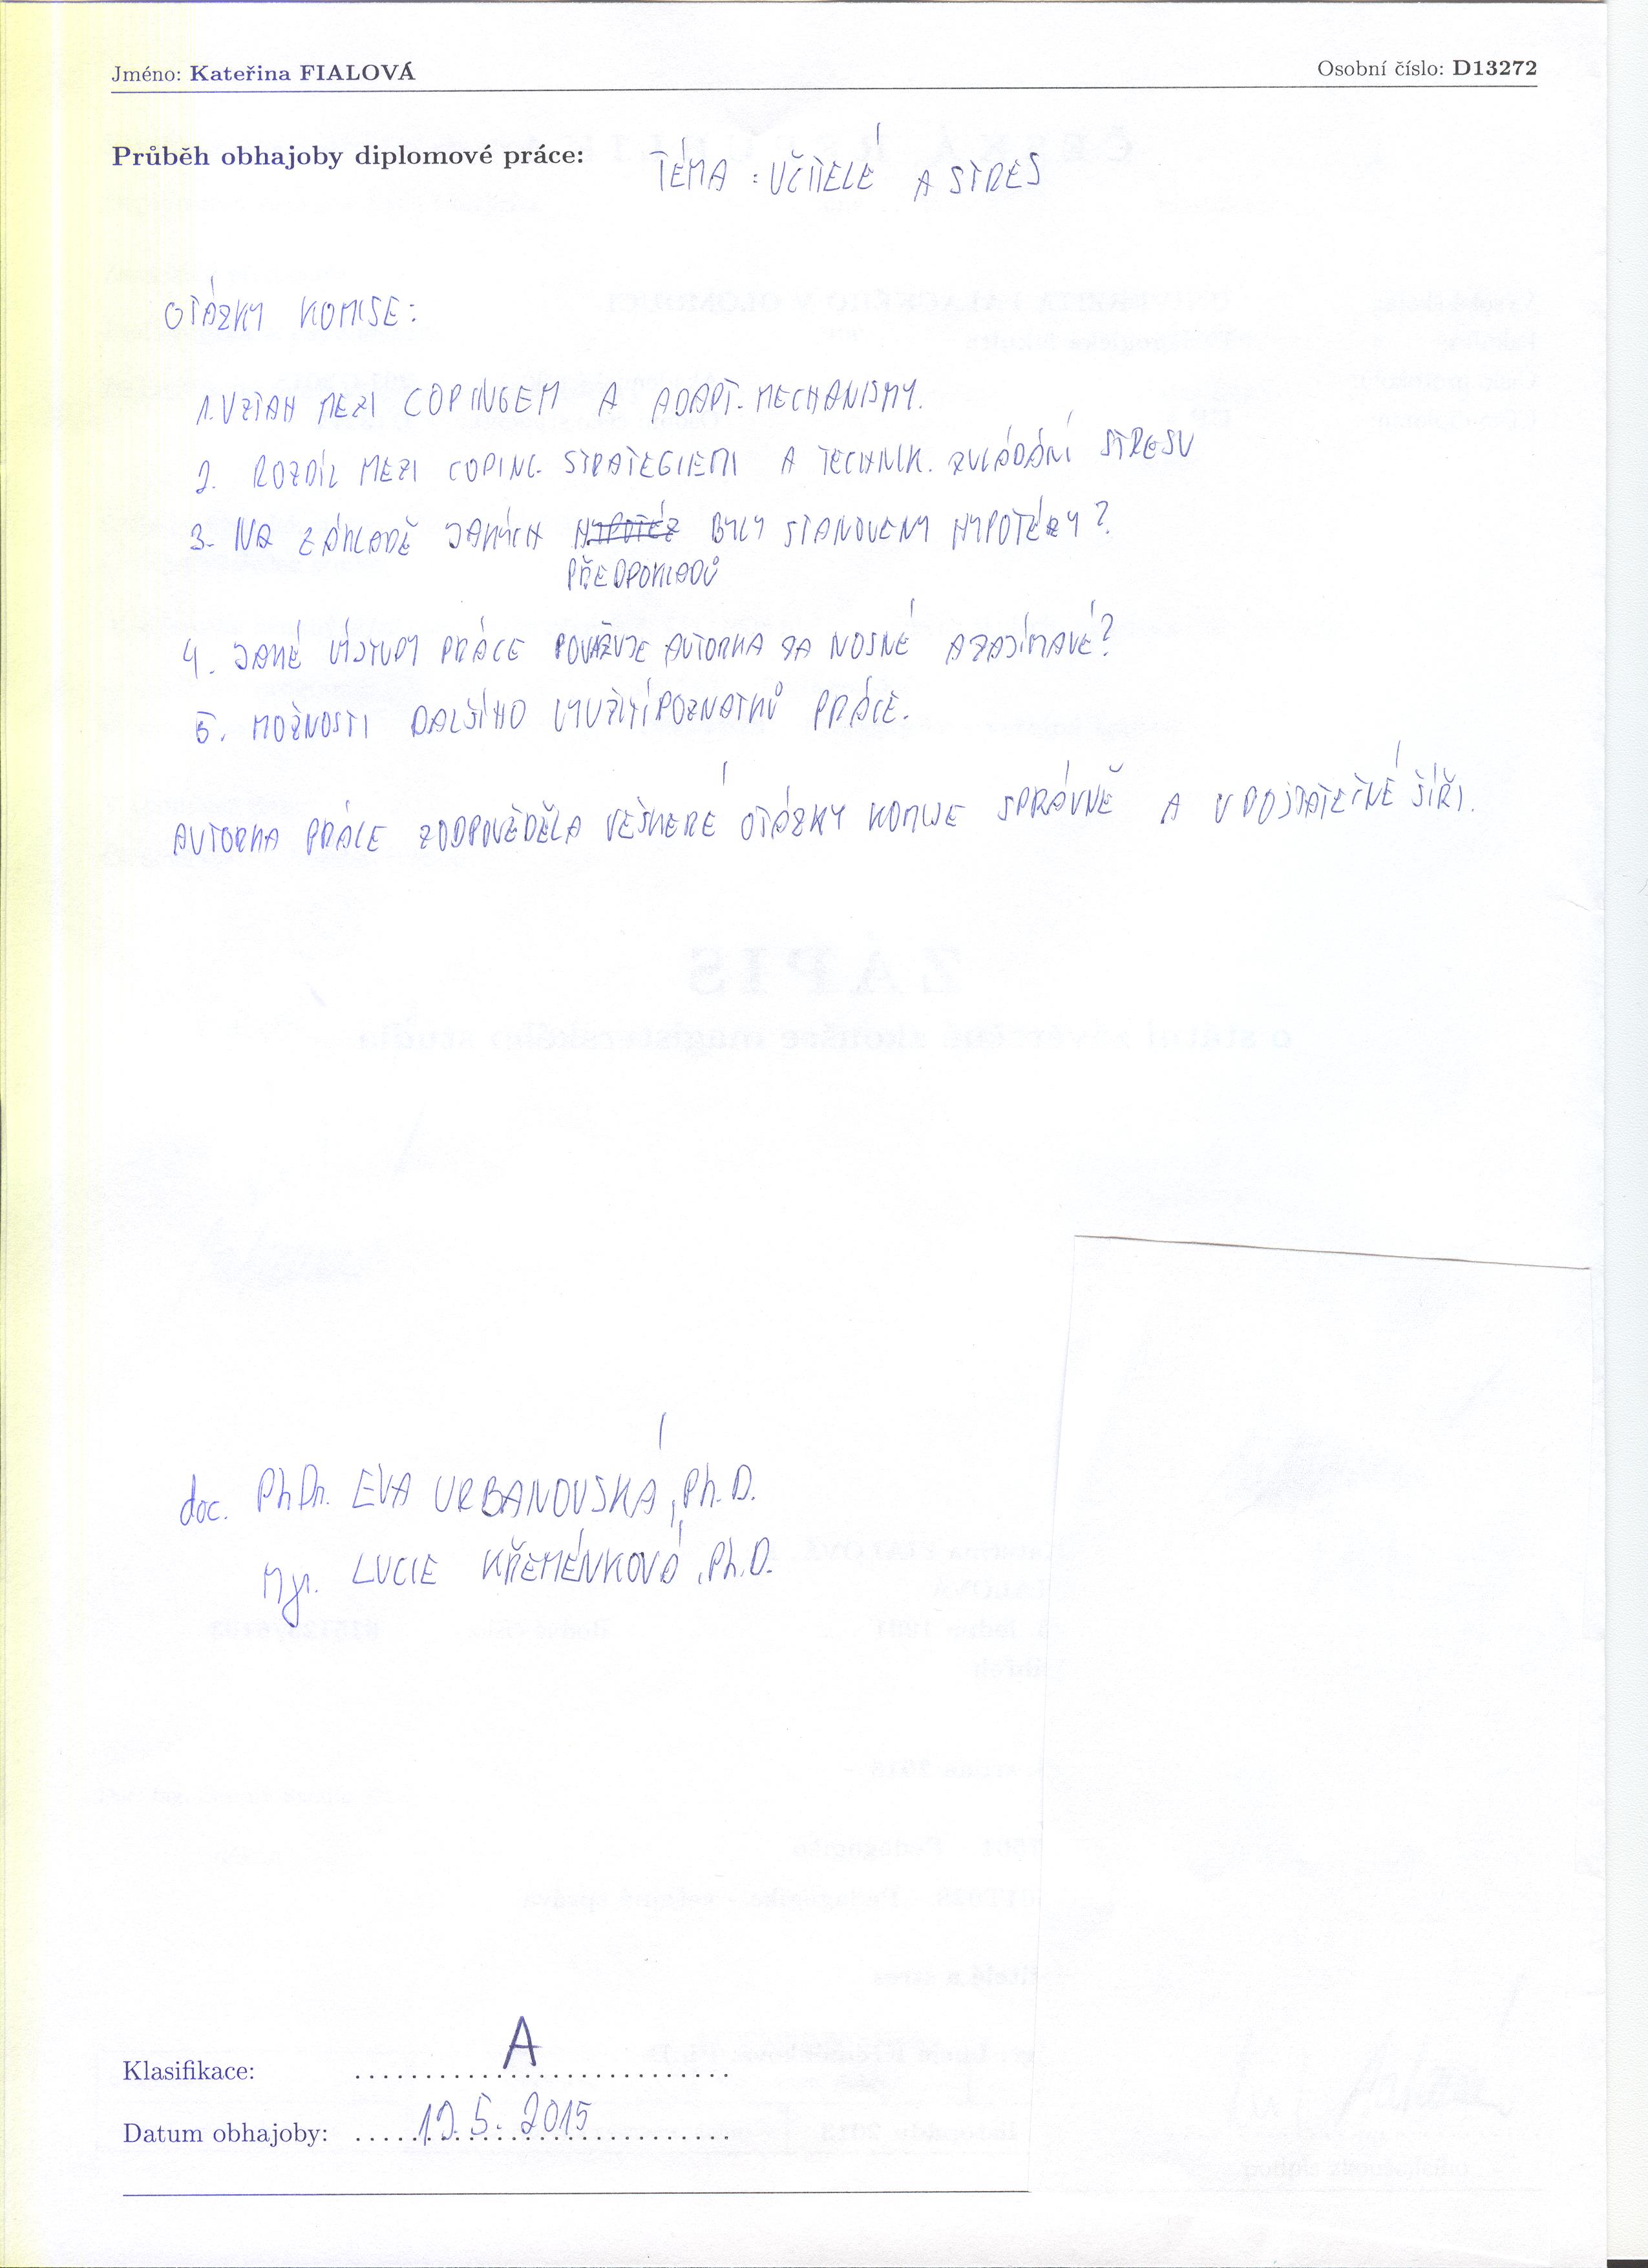 Jméno: Kateřina FIALOVÁ Osobní číslo: D13272
Průběh obhajoby diplomové práce: TÉMA: UČITELÉ A STRES
OTÁZKY KOMISE:
1. VZTAH MEZI COPINGEM A ADAPT. MECHANISMY.
2. ROZDÍL MEZI COPING. STRATEGIEMI A TECHNIK. ZVLÁDÁNÍ STRESU
3. NA ZÁKLADĚ JAKÝCH HYPOTÉZ BYLY STANOVENY HYPOTÉZY?
PŘEDPOKLADŮ
4. JAKÉ VÝSTUPY PRÁCE POVAŽUJE AUTORKA ZA NOSNÉ A ZAJÍMAVÉ?
5. MOŽNOSTI DALŠÍHO VYUŽITÍ POZNATKŮ PRÁCE.
AUTORKA PRÁCE ZODPOVĚDĚLA VEŠKERÉ OTÁZKY KOMISE SPRÁVNĚ A V DOSTATEČNÉ ŠÍŘI.
doc. PhDr. EVA URBANOVSKÁ, Ph.D.
Mgr. LUCIE KŘEMÉNKOVÁ, Ph.D.
Klasifikace: A
Datum obhajoby: 5. 2015